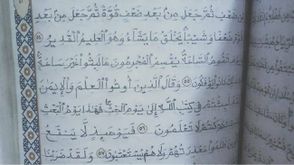 ضعف ثم جعل من بعد ضعف قوة ثم جعل من بعد
قوة ضعفا وشيبة يخلق ما يشاء وهو العليم القدير ٥٤
الساعة يقسم المجرمون ما لبثوا غير ساعة
كانوا يؤفكون ٥٥ وقال الذين أوتوا العلم والإيمن
في كتب الله إلى يوم البعث فهذا يوم البعث
كنتم لا تعلمون ٥٦ فيومئذ لا ينفع
معذرتهم ولا هم يستعتبون ٥٧ ولقد ضربنا